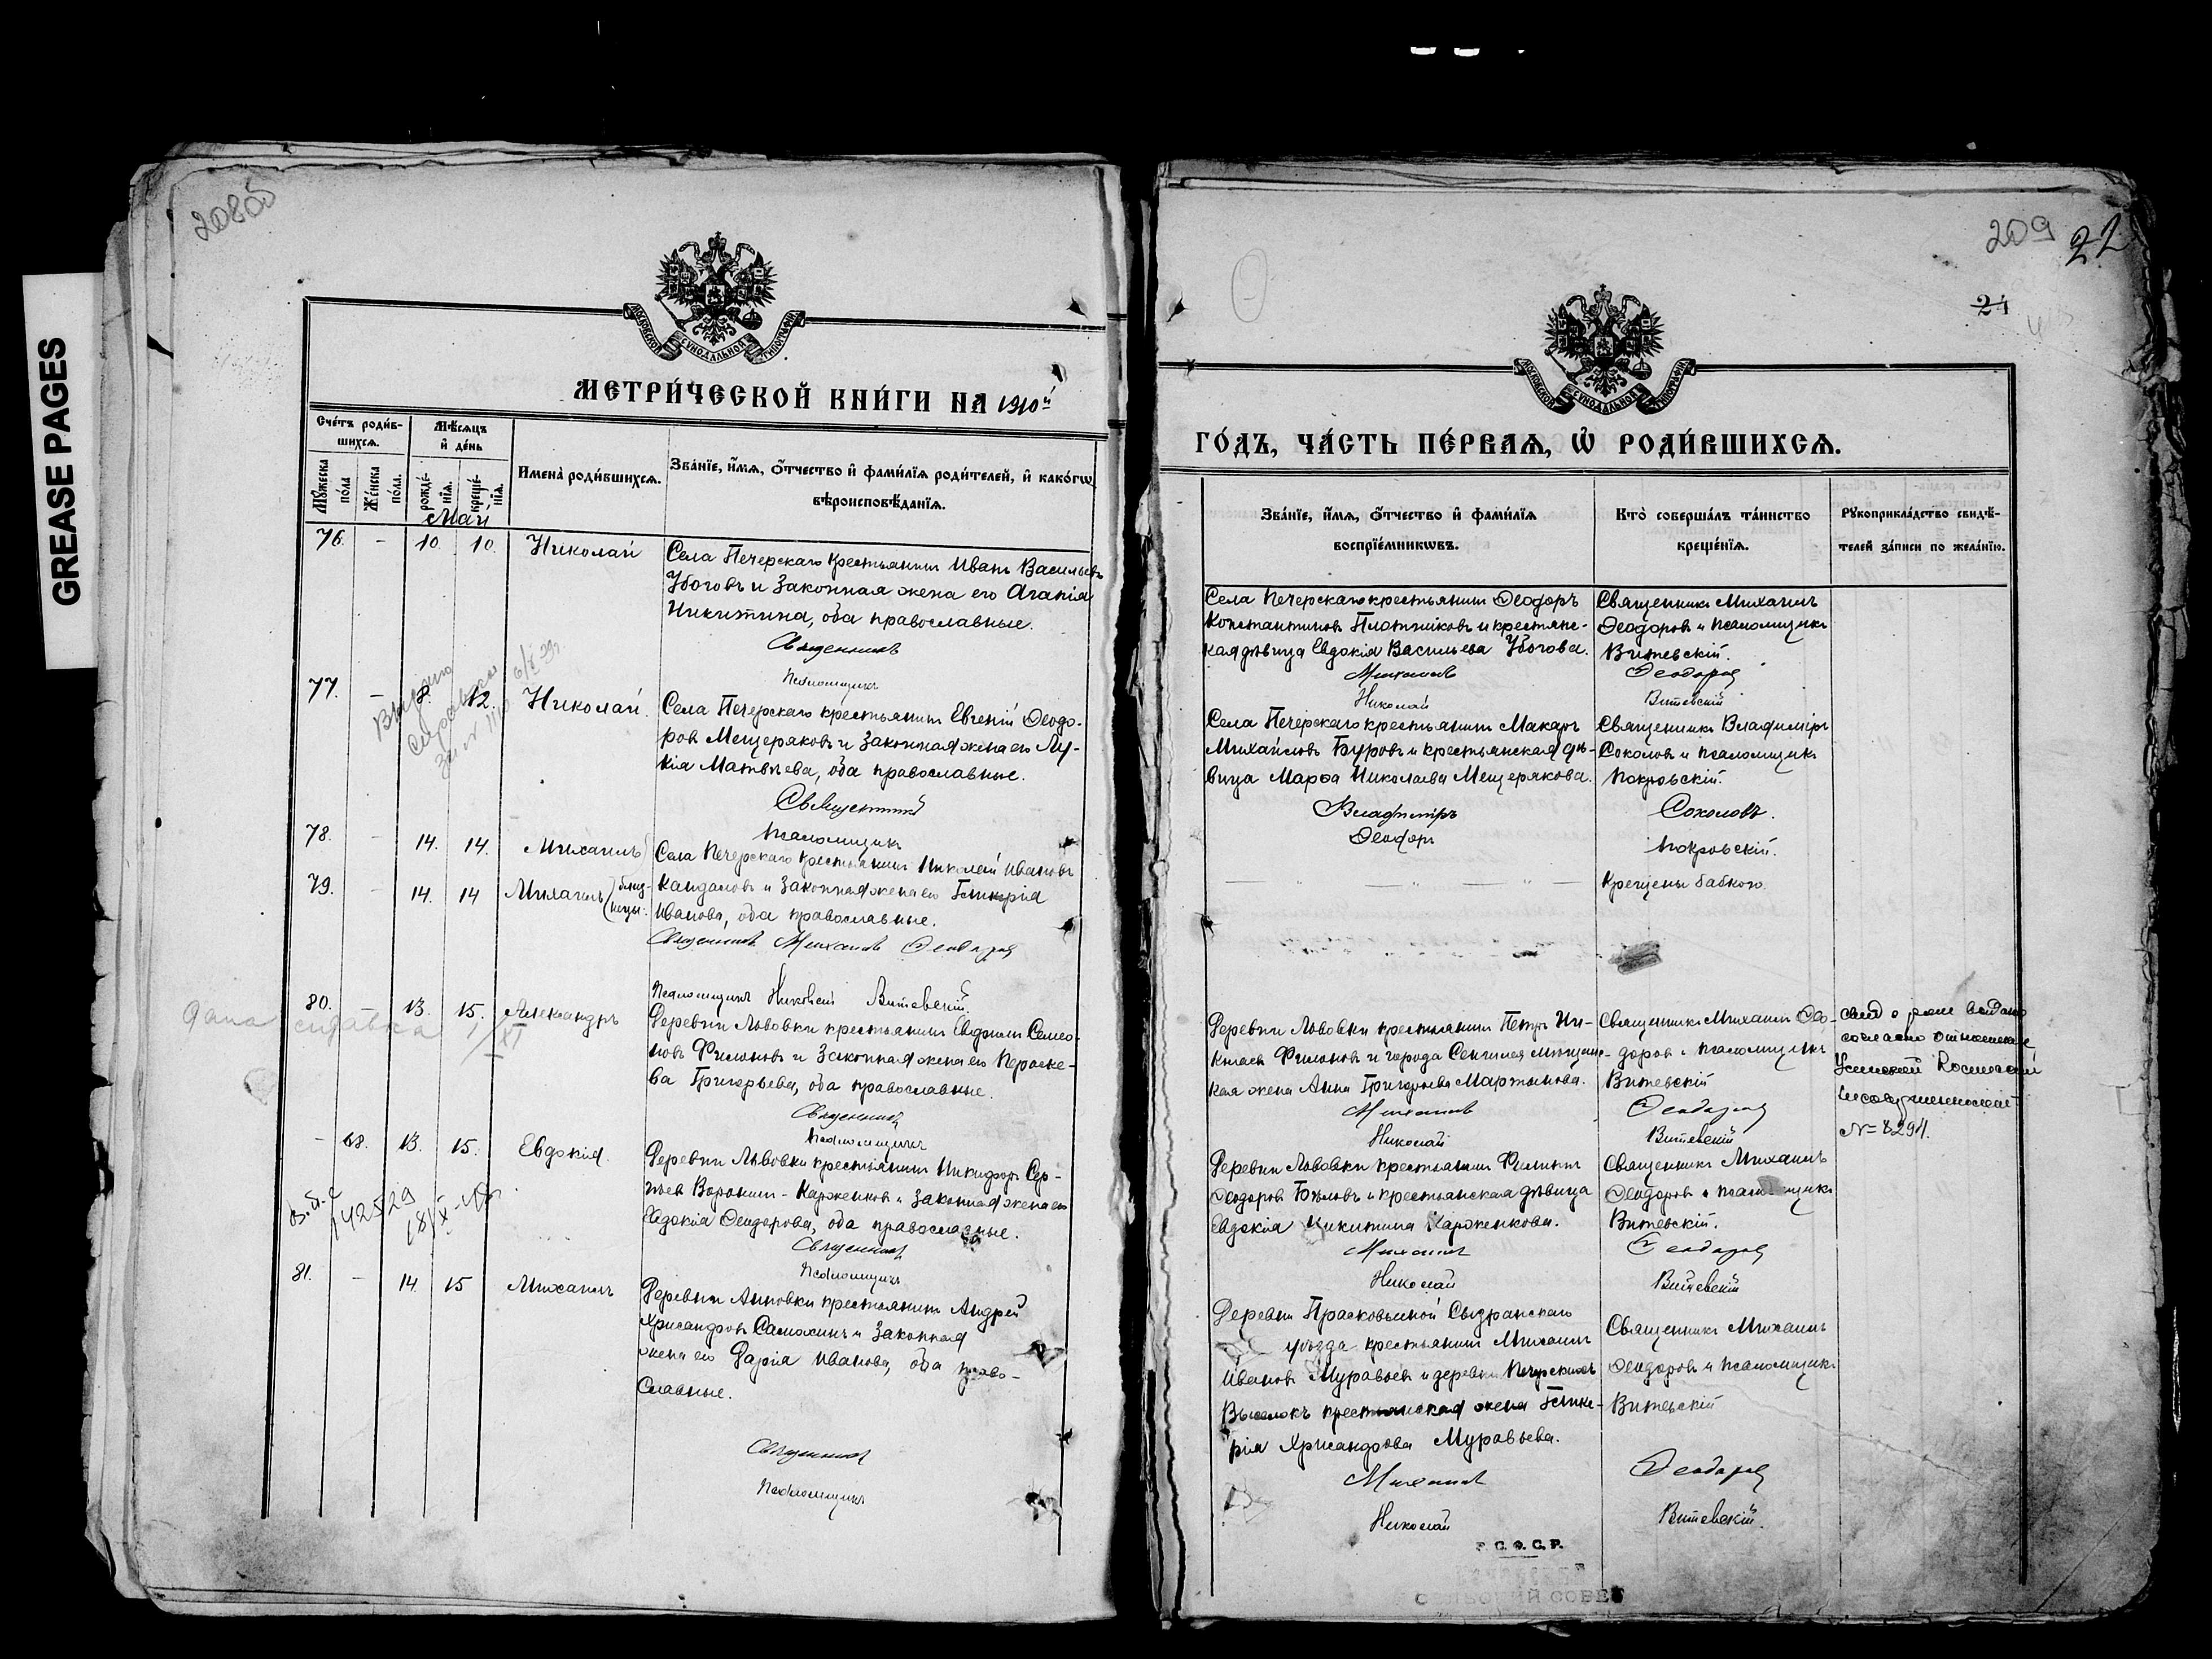 GREASE PAGES
208об
МОСКОВСКОЙ СѴНОДАЛЬНОЙ ТИПОГРАФІИ
МЕТРИ́ЧЕСКОЙ КНИ́ГИ НА 1910й
Сче́тъ роди́в-
шихсѧ.
Мꙋ́жеска по́ла
Же́нска по́ла.
Мѣ́сѧцъ и҆ де́нь
рожде́-нїѧ.
креще́-нїѧ.
Имена̀ роди́вшихсѧ.
Зва́нїе, и҆́мѧ, ѻ҆́тчество и҆ фами́лїѧ роди́телей, и҆ како́гѡ
вѣроисповѣ́данїѧ.
Май
76. - 10. 10. Николай
Села Печерскаго крестьянинъ Иванъ Васильевъ
Убоговъ и законная жена его Агапія
Никитина, оба православные.
Священникъ
Псаломщикъ
77. - 8. 12. Николай.
Выдано
справка
Села Печерскаго крестьянинъ Евгеній Ѳеодо-
ровъ Мещеряковъ и законная жена его Лу-
кія Матвѣева, оба православные.
Священникъ
Псаломщикъ
78. - 14. 14. Михаилъ
79. - 14. 14 Михаилъ близ-
нецы.
Села Печерскаго крестьянинъ Николай Ивановъ
Кандаловъ и законная жена его Гликерія
Иванова, оба православные.
Священникъ Михаилъ Ѳеодоровъ
Псаломщикъ Николай Витевскій
80. - 13. 15. Александръ
дана справка
Деревни Львовки крестьянинъ Евдокимъ Семео-
новъ Филоновъ и законная жена его Параске-
ва Григорьева, оба православные.
Священникъ
Псаломщикъ
- 68. 13. 15. Евдокія.
142529
Деревни Львовки крестьянинъ Никифоръ Сер-
гѣевъ Воронинъ-Карженковъ и законная жена его
Евдокія Ѳеодорова, оба православные.
Священникъ
Псаломщикъ
81. - 14. 15 Михаилъ
Деревни Анновки крестьянинъ Андрей
Хрисанфовъ Самохинъ и законная
жена его Дарія Иванова, оба право-
славные.
Священникъ
Псаломщикъ
209 22
21
МОСКОВСКОЙ СѴНОДАЛЬНОЙ ТИПОГРАФІИ
ГО́ДЪ, ЧА́СТЬ ПЕ́РВАѦ, Ѡ҆ РОДИ́ВШИХСѦ.
Зва́нїе, и҆́мѧ, ѻ҆́тчество и҆ фами́лїѧ
воспрїе́мникѡвъ.
Кто̀ соверша́лъ та́инство
креще́нїѧ.
Рꙋкоприкла́дство свидѣ́-
телей за́писи по жела́нїю.
Села Печерскаго крестьянинъ Ѳеодоръ
Константиновъ Плотниковъ и крестьянс-
кая дѣвица Евдокія Васильева Убогова.
Михаилъ
Николай
Священникъ Михаилъ
Ѳеодоровъ и псаломщикъ
Витевскій.
Ѳеодоровъ
Витевскій
Села Печерскаго крестьянинъ Макаръ
Михайловъ Буровъ и крестьянская дѣ-
вица Марѳа Николаева Мещерякова.
Владиміръ
Ѳеодоръ
Священникъ Владиміръ
Соколовъ и псаломщикъ
Покровскій.
Соколовъ.
Покровскій.
— " — " — " —
Крещены бабкою.
Деревни Львовки крестьянинъ Петръ Ни-
колаевъ Филоновъ и города Сенгилея мѣщанс-
кая жена Анна Григорьева Мартынова.
Михаилъ
Николай
Священникъ Михаилъ Ѳео-
доровъ и псаломщикъ
Витевскій
Ѳеодоровъ
Витевскій
свид о рож выдано
согласно отношенія
№ 8294.
Деревни Львовки крестьянинъ Филиппъ
Ѳеодоровъ Бѣловъ и крестьянская дѣвица
Евдокія Никитина Карженкова.
Михаилъ
Николай
Священникъ Михаилъ
Ѳеодоровъ и псаломщикъ
Витевскій.
Ѳеодоровъ
Витевскій
Деревни Прасковьиной Сызранскаго
уѣзда крестьянинъ Михаилъ
Ивановъ Муравьевъ и деревни Печерскихъ
Выселокъ крестьянская жена Глике-
рія Хрисанфова Муравьева.
Михаилъ
Николай
Священникъ Михаилъ
Ѳеодоровъ и псаломщикъ
Витевскій
Ѳеодоровъ
Витевскій.
Р. С. Ф. С. Р.
СЕЛЬСКИЙ СОВЕТ